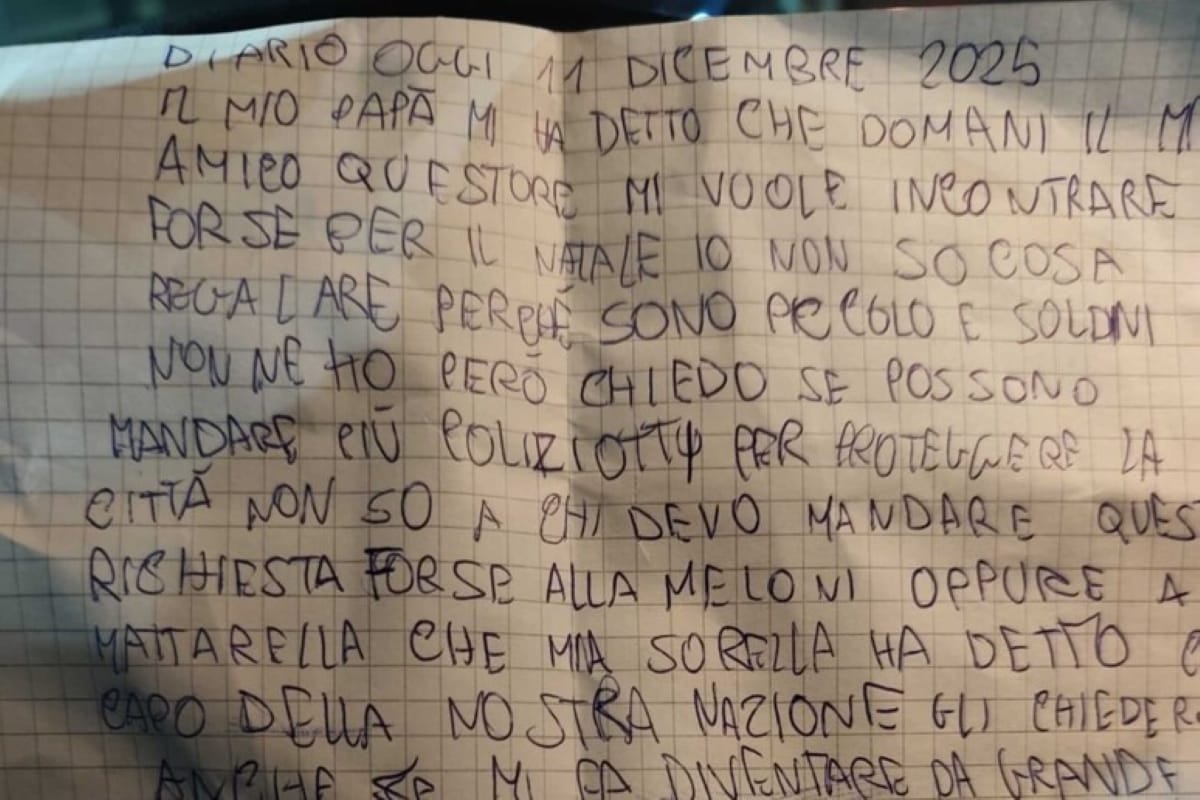 DIARIO OGGI 11 DICEMBRE 2025
IL MIO PAPÀ MI HA DETTO CHE DOMANI IL MI
AMICO QUESTORE MI VUOLE INCONTRARE
FORSE PER IL NATALE IO NON SO COSA
REGALARE PERCHÈ SONO PICCOLO E SOLDNI
NON NE HO PERÒ CHIEDO SE POSSONO
MANDARE PIÙ POLIZIOTTI PER PROTEGGERE LA
CITTÀ NON SO A CHI DEVO MANDARE QUES
RICHIESTA FORSE ALLA MELONI OPPURE A
MATTARELLA CHE MIA SORELLA HA DETTO
CAPO DELLA NOSTRA NAZIONE GLI CHIEDER
ANCHE SE MI FA DIVENTARE DA GRANDE